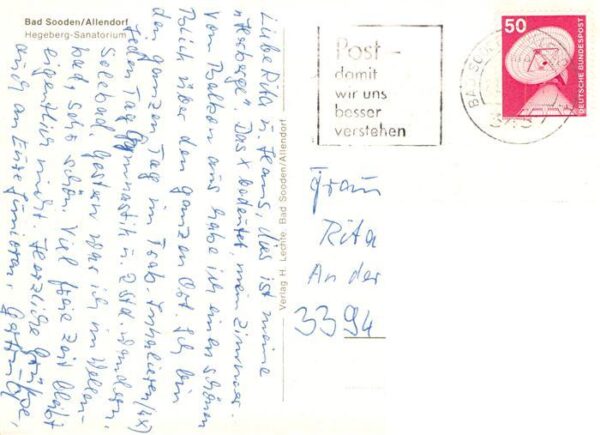 Bad Sooden/Allendorf
Hegeberg-Sanatorium
Liebe Rita u. Hans, dies ist meine
"Herberge". Das x bedeutet, mein Zimmer.
Vom Balkon aus habe ich einen schönen
Blick über den ganzen Ort. Ich bin
den ganzen Tag im Trab. Inhalieren (4x)
jeden Tag Gymnastik u. 2 Std. wandern,
Solebad. Gestern war ich im Wellen-
bad, sehr schön. Viel freie Zeit bleibt
eigentlich nicht. Herzliche Grüße,
auch an Eure Junioren,
Verlag H. Lechte, Bad Sooden/Allendorf
Post -
damit
wir uns
besser
verstehen
50
DEUTSCHE BUNDESPOST
Frau
Rita
An der
3394